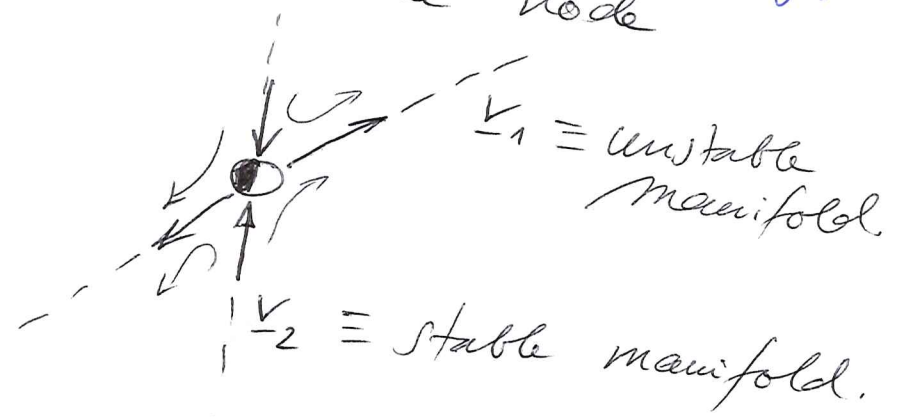 node
v1 ≡ unstable
manifold.
v2 ≡ stable manifold.